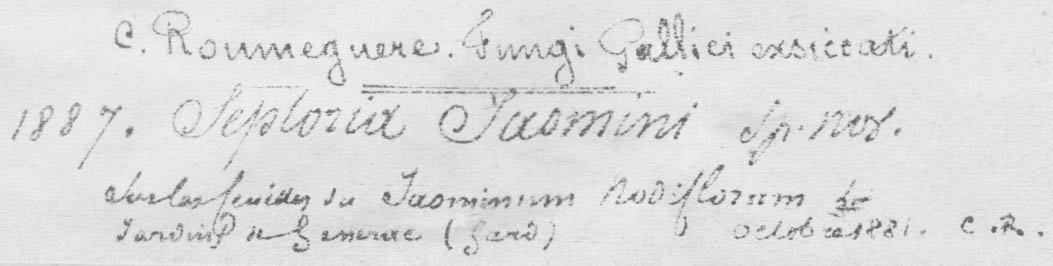 C. Roumeguere. Fungi Gallici exsiccati.
1887. Septoria Jasmini Sp. nov.
Sur les feuilles du Jasminum Nodiflorum
Jardins de Generac (Gard) octobre 1881. C. R.